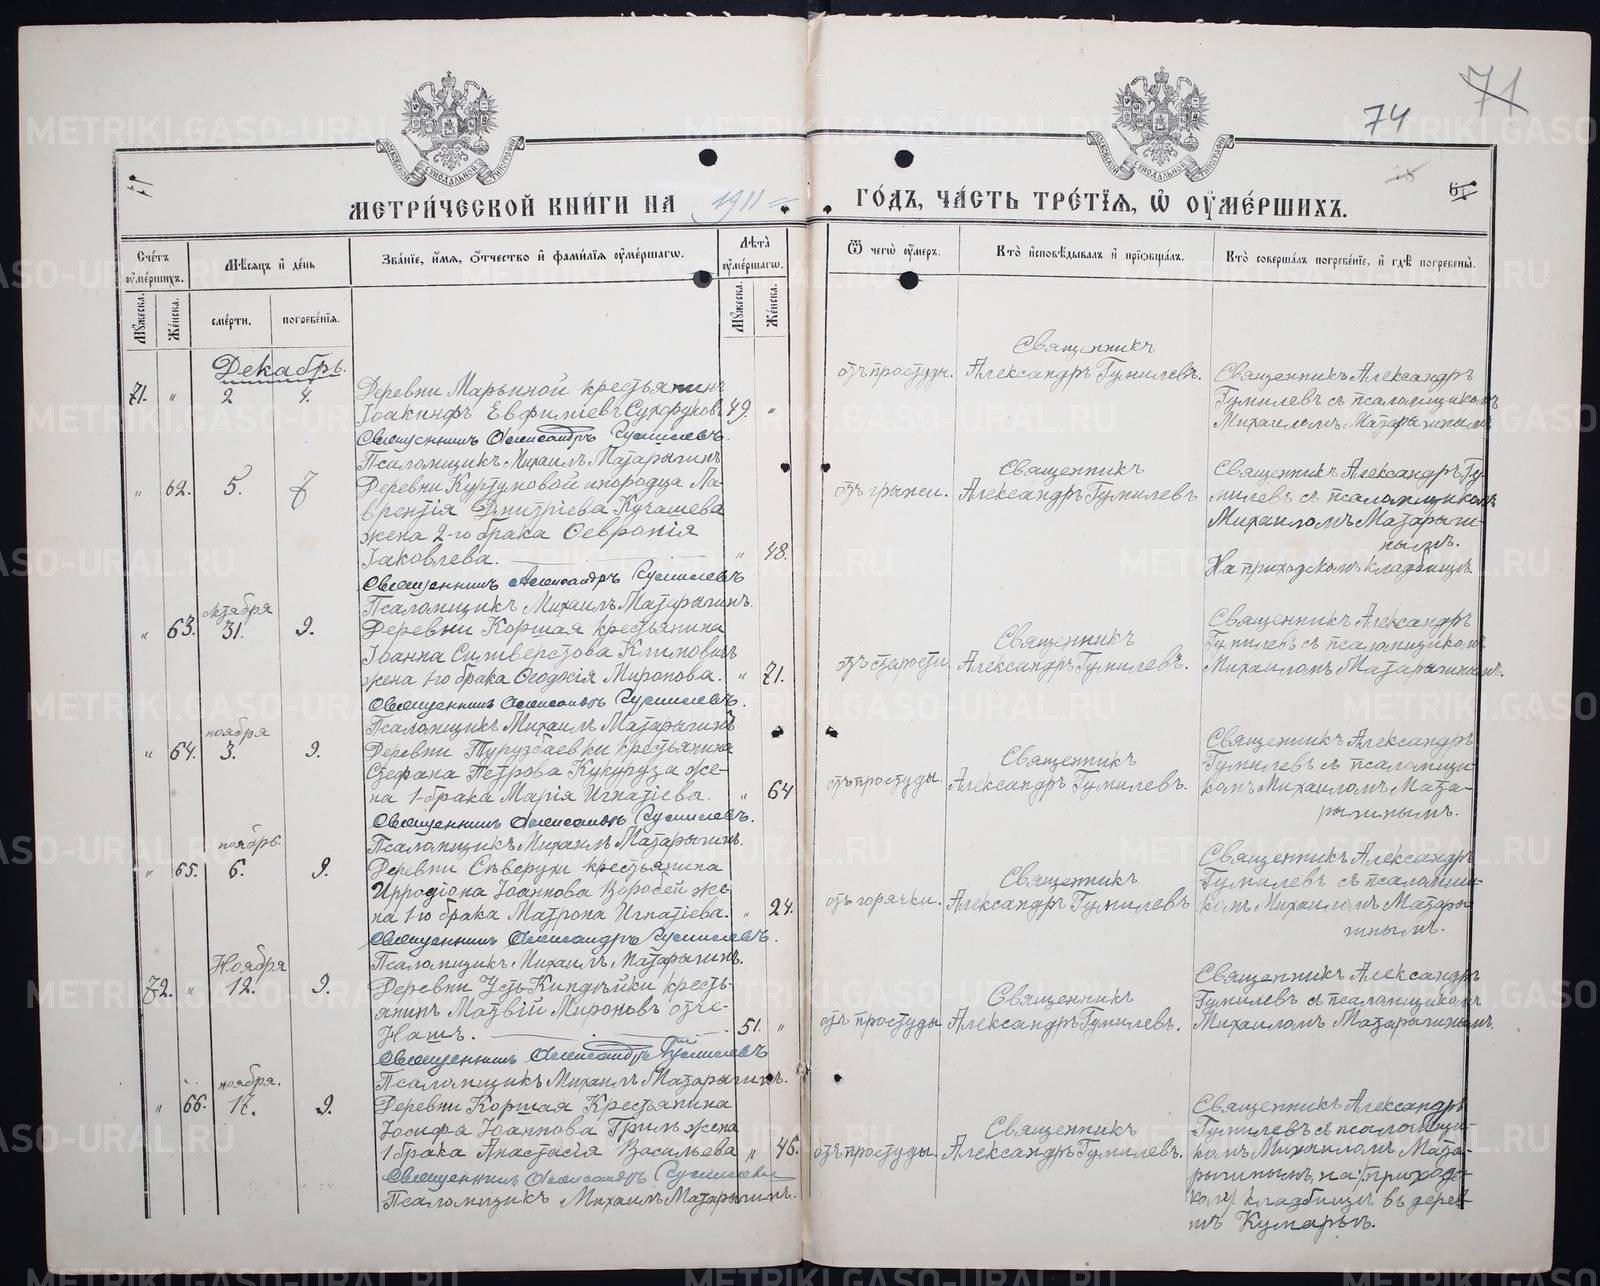 74
71
МЕТРИ́ЧЕСКОЙ КНИ́ГИ НА 1911 ГО́ДЪ, ЧА́СТЬ ТРЕ́ТЇѦ, Ѡ ОУМЕ́РШИХЪ.
Сче́тъ оуме́ршихъ.
Мѣ́сѧцъ и҆ де́нь
Зва́нїе, и҆́мѧ, ѻ҆́тчество и҆ фами́лїѧ оуме́ршагѡ.
Лѣ́та оуме́ршагѡ.
Ѿ чегѡ̀ оу́меръ.
Кто̀ и҆сповѣ́дывалъ и҆ прїѡбща́лъ.
Кто̀ соверша́лъ погребе́нїе, и҆ гдѣ̀ погребены̀.
Мꙋ́жеска.
Же́нска.
сме́рти.
погребе́нїѧ.
Мꙋ́жеска.
Же́нска.
Декабрь.
71. " 2 4.
Деревни Марьиной крестьянинъ
Іоакинфъ Евфиміевъ Сухоруковъ 49. "
Священникъ Александръ Гумилевъ.
Псаломщикъ Михаилъ Матарыгинъ
отъ простуды.
Священникъ
Александръ Гумилевъ.
Священникъ Александръ
Гумилевъ съ псаломщикомъ
Михаиломъ Матарыгинымъ
" 62. 5. 7
Деревни Куртумовой инородца Ла-
врентія Дмитріева Кучашева
жена 2-го брака Февронія
Іаковлева. " 48.
Священникъ Александръ Гумилевъ
Псаломщикъ Михаилъ Матарыгинъ.
отъ грыжи.
Священникъ
Александръ Гумилевъ
Священникъ Александръ Гу-
милевъ съ псаломщикомъ
Михаиломъ Матарыги-
нымъ.
На приходскомъ кладбищѣ.
октября
" 63. 31. 9.
Деревни Коршая крестьянина
Іоанна Силверстова Климовичъ
жена 1-го брака Феодосія Миронова. " 71.
Священникъ Александръ Гумилевъ.
Псаломщикъ Михаилъ Матарыгинъ
отъ старости
Священникъ
Александръ Гумилевъ.
Священникъ Александръ
Гумилевъ съ псаломщикомъ
Михаиломъ Матарыгинымъ.
ноября
" 64. 3. 9.
Деревни Турузбаевки крестьянина
Стефана Петрова Кукуруза же-
на 1-брака Марія Игнатіева. " 64
Священникъ Александръ Гумилевъ.
Псаломщикъ Михаилъ Матарыгинъ.
отъ простуды.
Священникъ
Александръ Гумилевъ.
Священникъ Александръ
Гумилевъ съ псаломщи-
комъ Михаиломъ Мата-
рыгинымъ.
ноябрь.
" 65. 6. 9.
Деревни Сѣверухи крестьянина
Иродіона Іоаннова Воробей же-
на 1-го брака Матрона Игнатіева. " 24.
Священникъ Александръ Гумилевъ.
Псаломщикъ Михаилъ Матарыгинъ.
отъ горячки.
Священникъ
Александръ Гумилевъ
Священникъ Александръ
Гумилевъ съ псаломщи-
комъ Михаиломъ Матары-
гинымъ.
Ноября
72. " 12. 9.
Деревни Усть-Киндейки кресть-
янинъ Матвій Мироновъ отче-
Нашъ. 51. "
Священникъ Александръ Гумилевъ
Псаломщикъ Михаилъ Матарыгинъ.
отъ простуды
Священникъ
Александръ Гумилевъ.
Священникъ Александръ
Гумилевъ съ псаломщикомъ
Михаиломъ Матарыгинымъ.
ноября.
" 66. 17. 9.
Деревни Коршая Крестьянина
Іосифа Іоаннова Гриль жена
1 брака Анастасія Васильева " 45.
Священникъ Александръ Гумилевъ
Псаломщикъ Михаилъ Матарыгинъ.
отъ простуды.
Священникъ
Александръ Гумилевъ.
Священникъ Александръ
Гумилевъ съ псаломщи-
комъ Михаиломъ Мата-
рыгинымъ, на приходс-
кому кладбищѣ въ дерев-
нѣ Кумары.